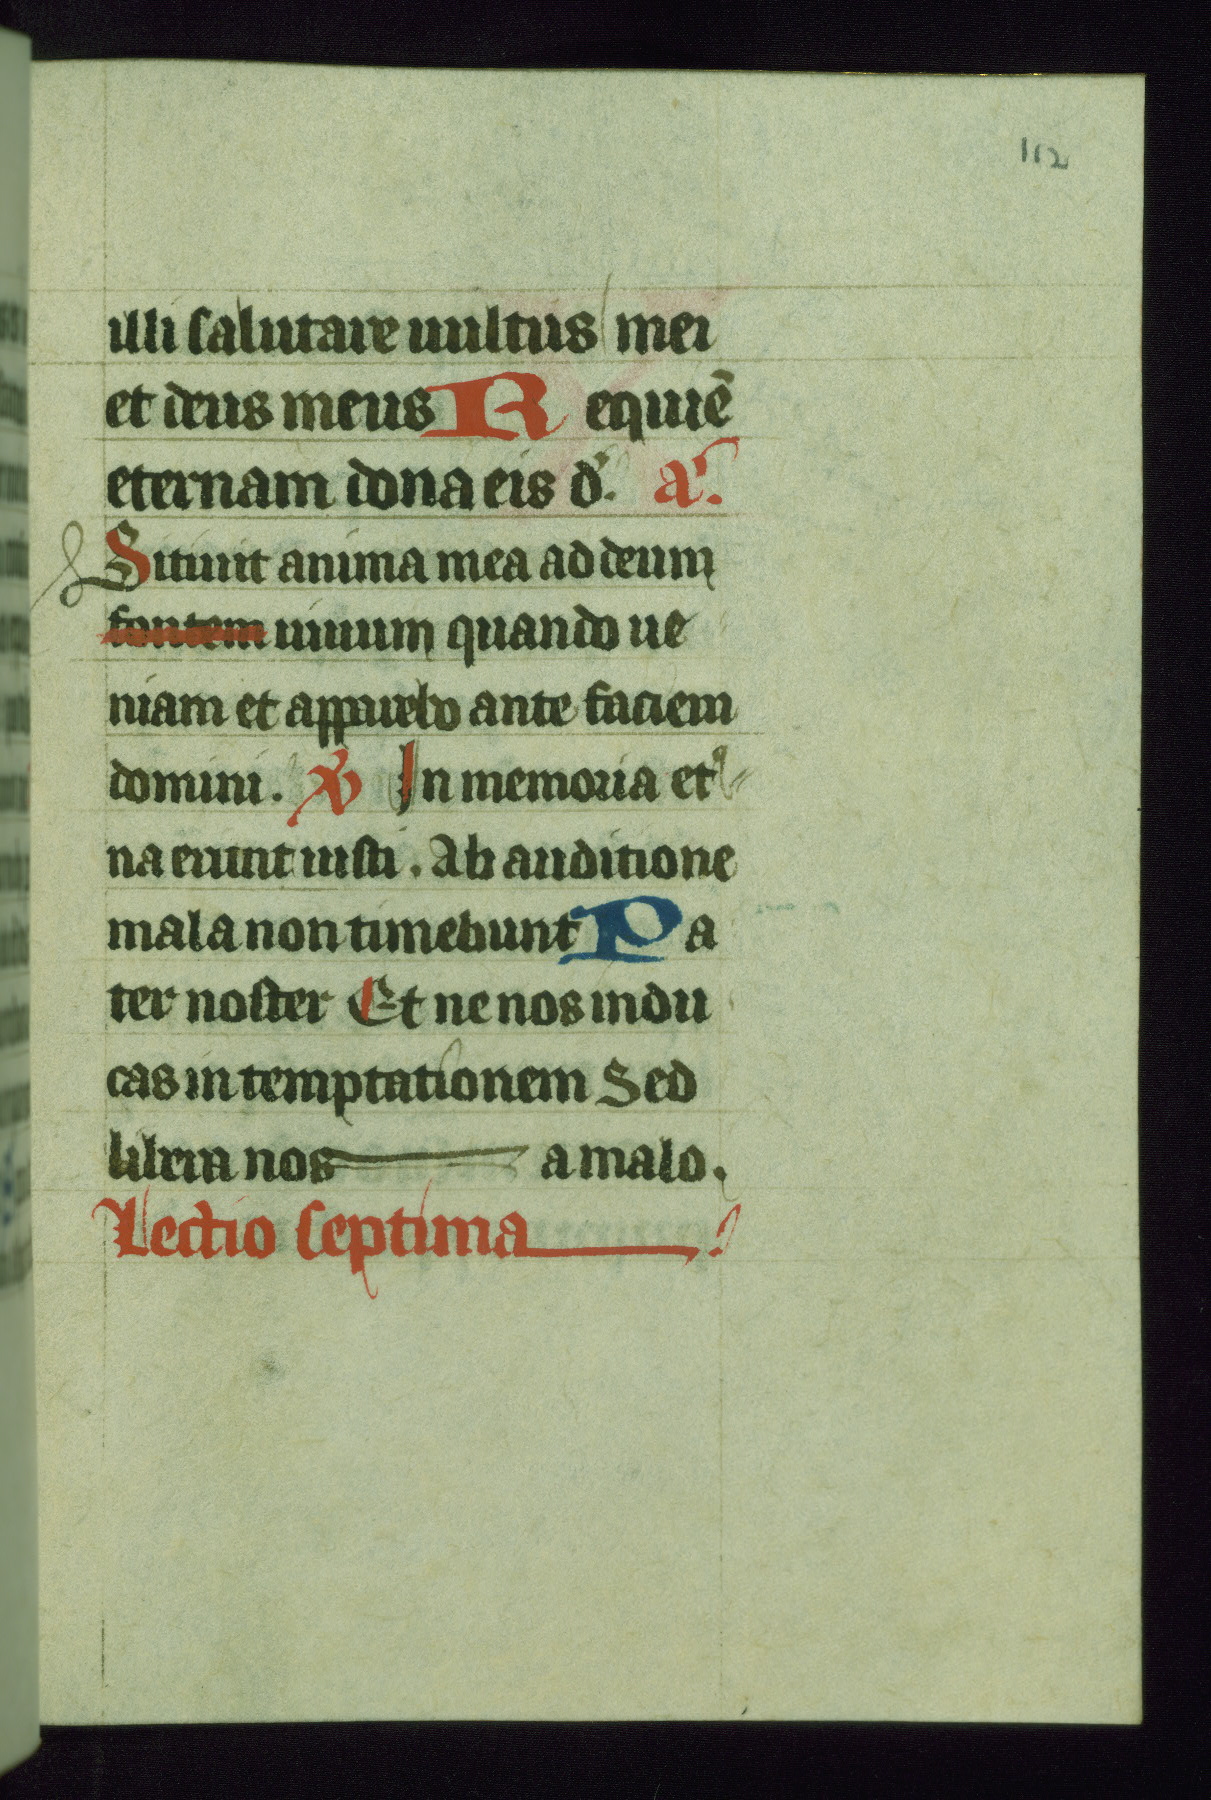 112
illi salutare uultus mei
et deus meus Requiē
eternam dona eis d'. a'.
Sitiuit anima mea ad deum
fontem uiuum quando ue
niam et apparebo ante faciem
domini. V In memoria et'
na erunt iusti. Ab auditione
mala non timebunt Pa
ter noster Et ne nos indu
cas in temptationem Sed
libera nos a malo.
Lectio septima